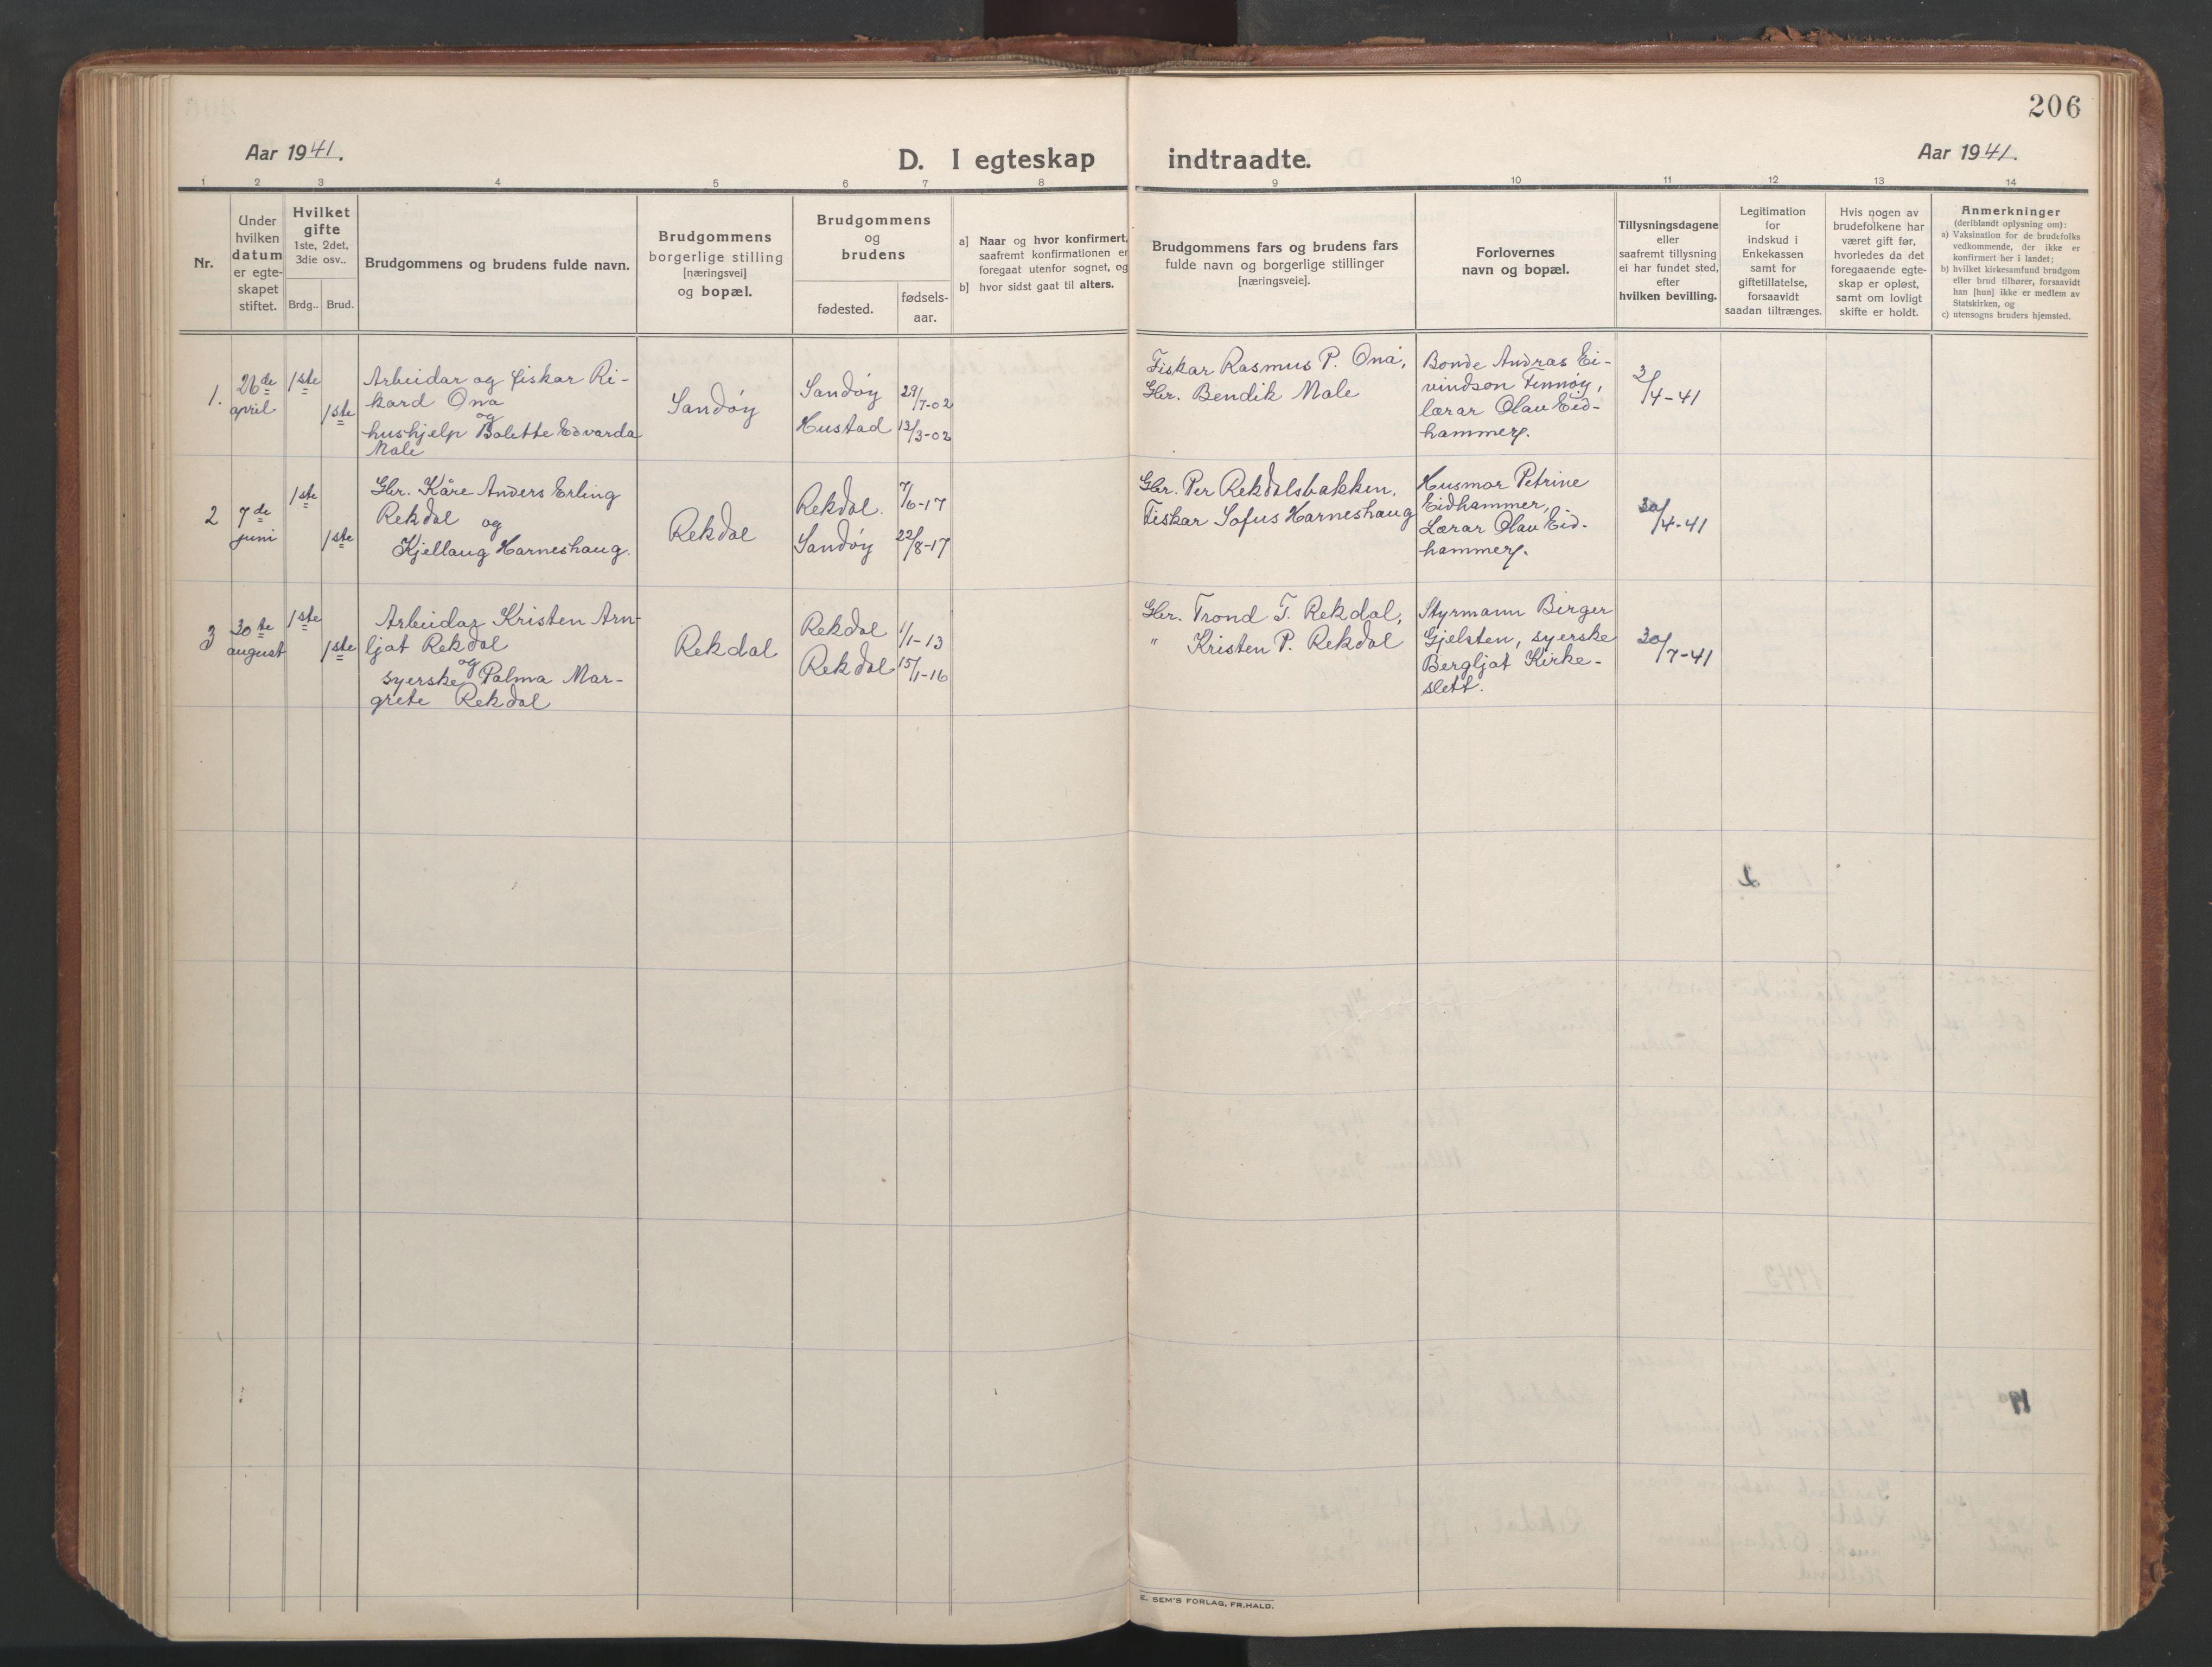 206
Aar 1941.
D. I egteskap indtraadte.
Aar 1941.
1 2 3 4 5 6 7 8 9 10 11 12 13 14
Nr.
Under
hvilken
datum
er egte-
skapet
stiftet.
Hvilket
gifte
1ste, 2det,
3die osv..
Brdg.. Brud.
Brudgommens og brudens fulde navn.
Brudgommens
borgerlige stilling
[næringsvei]
og bopæl.
Brudgommens
og
brudens
fødested.
fødsels-
aar.
a] Naar og hvor konfirmert,
saafremt konfirmationen er
foregaat utenfor sognet, og
b] hvor sidst gaat til alters.
Brudgommens fars og brudens fars
fulde navn og borgerlige stillinger
[næringsveie].
Forlovernes
navn og bopæl.
Tillysningsdagene
eller
saafremt tillysning
ei har fundet sted,
efter
hvilken bevilling.
Legitimation
for
indskud i
Enkekassen
samt for
giftetillatelse,
forsaavidt
saadan tiltrænges.
Hvis nogen av
brudefolkene har
været gift før,
hvorledes da det
foregaaende egte-
skap er opløst,
samt om lovligt
skifte er holdt.
Anmerkninger
(deriblandt oplysning om):
a) Vaksination for de brudefolks
vedkommende, der ikke er
konfirmert her i landet;
b) hvilket kirkesamfund brudgom
eller brud tilhører, forsaavidt
han [hun] ikke er medlem av
Statskirken, og
c) utensogns bruders hjemsted.
1.
26de
april
1ste
1ste
Arbeidar og fiskar Ri-
kard Ona
og
hushjelp Bolette Edvarda
Male
Sandøy
Sandøy
Hustad
29/7-02
13/3-02
Fiskar Rasmus P. Ona,
Gbr. Bendik Male
Bonde Andras Ei-
vindson Finnøy,
lærar Olau Eid-
hammer.
3/4-41
2
7de
juni
1ste
1ste
Gbr. Kåre Anders Erling
Rekdal og
Kjellaug Harneshaug.
Rekdal
Rekdal.
Sandøy
7/6-17
22/8-17
Gbr. Per Rekdalsbakken.
Fiskar Sofus Harneshaug
Husmor Petrine
Eidhammer,
Lærar Olau Eid-
hammer.
30/4-41
3
30te
august
1ste
1ste
Arbeidar Kristen Arn-
ljot Rekdal
og
syerske Palma Mar-
grete Rekdal
Rekdal
Rekdal
Rekdal
1/1-13
15/1-16
Gbr. Trond T. Rekdal,
" Kristen P. Rekdal
Styrmann Birger
Gjelsten, syerske
Bergljot Kirke-
slett.
30/7-41
E. SEM'S FORLAG, FR.HALD.